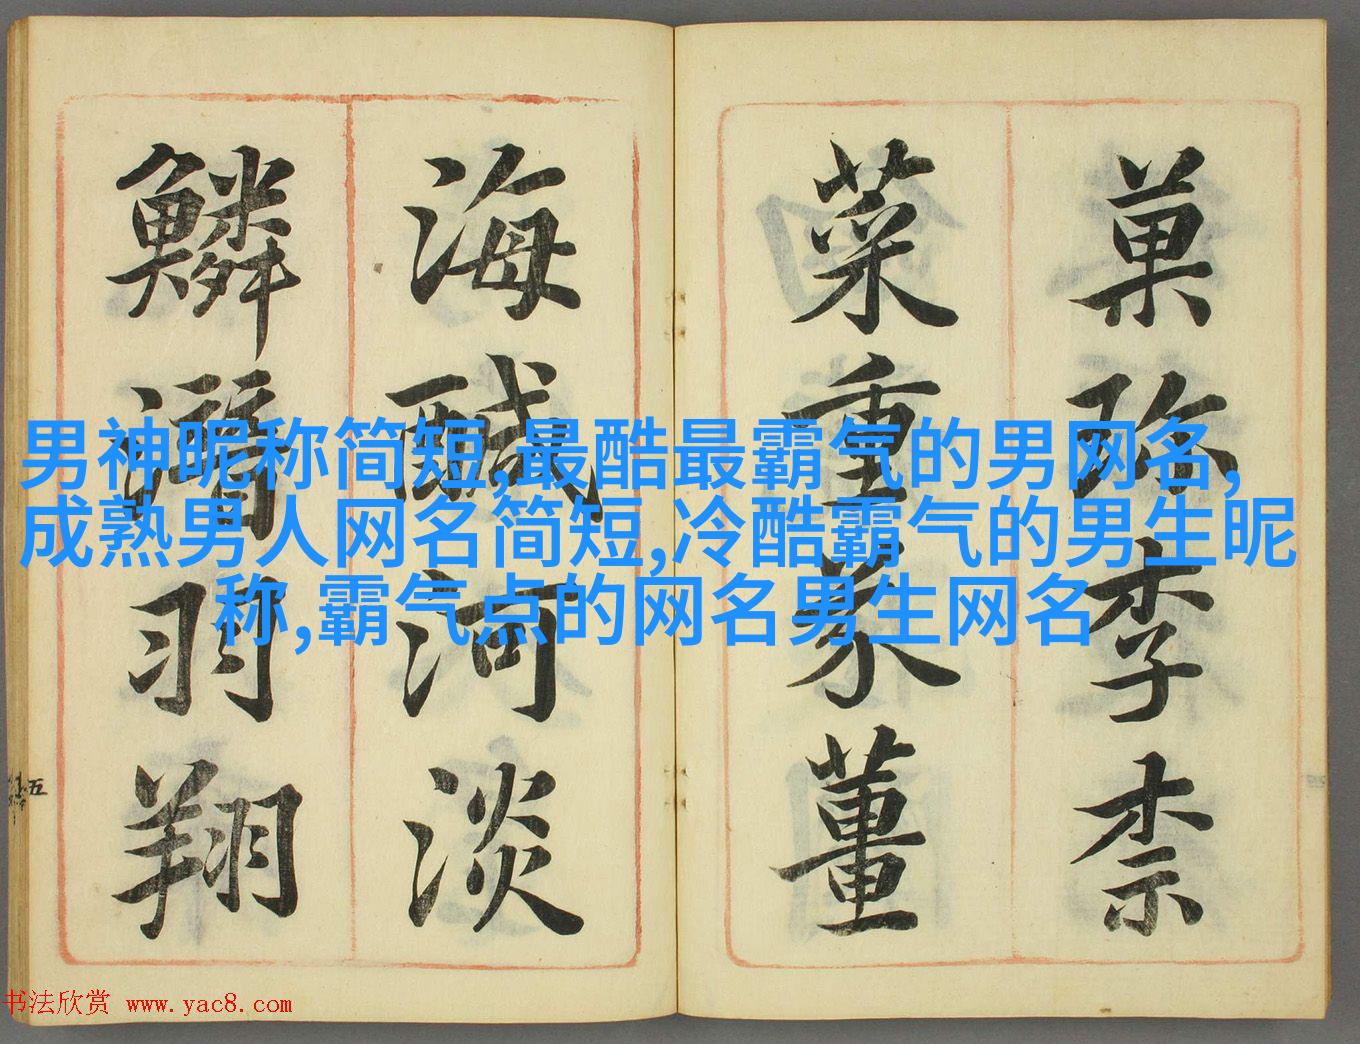 菓珎李柰
菜重芥薑
海醎河淡
鱗潛羽翔
男神昵称简短,最酷最霸气的男网名,
成熟男人网名简短,冷酷霸气的男生昵
称,霸气点的网名男生网名
五
书法欣赏 www.yac8.com